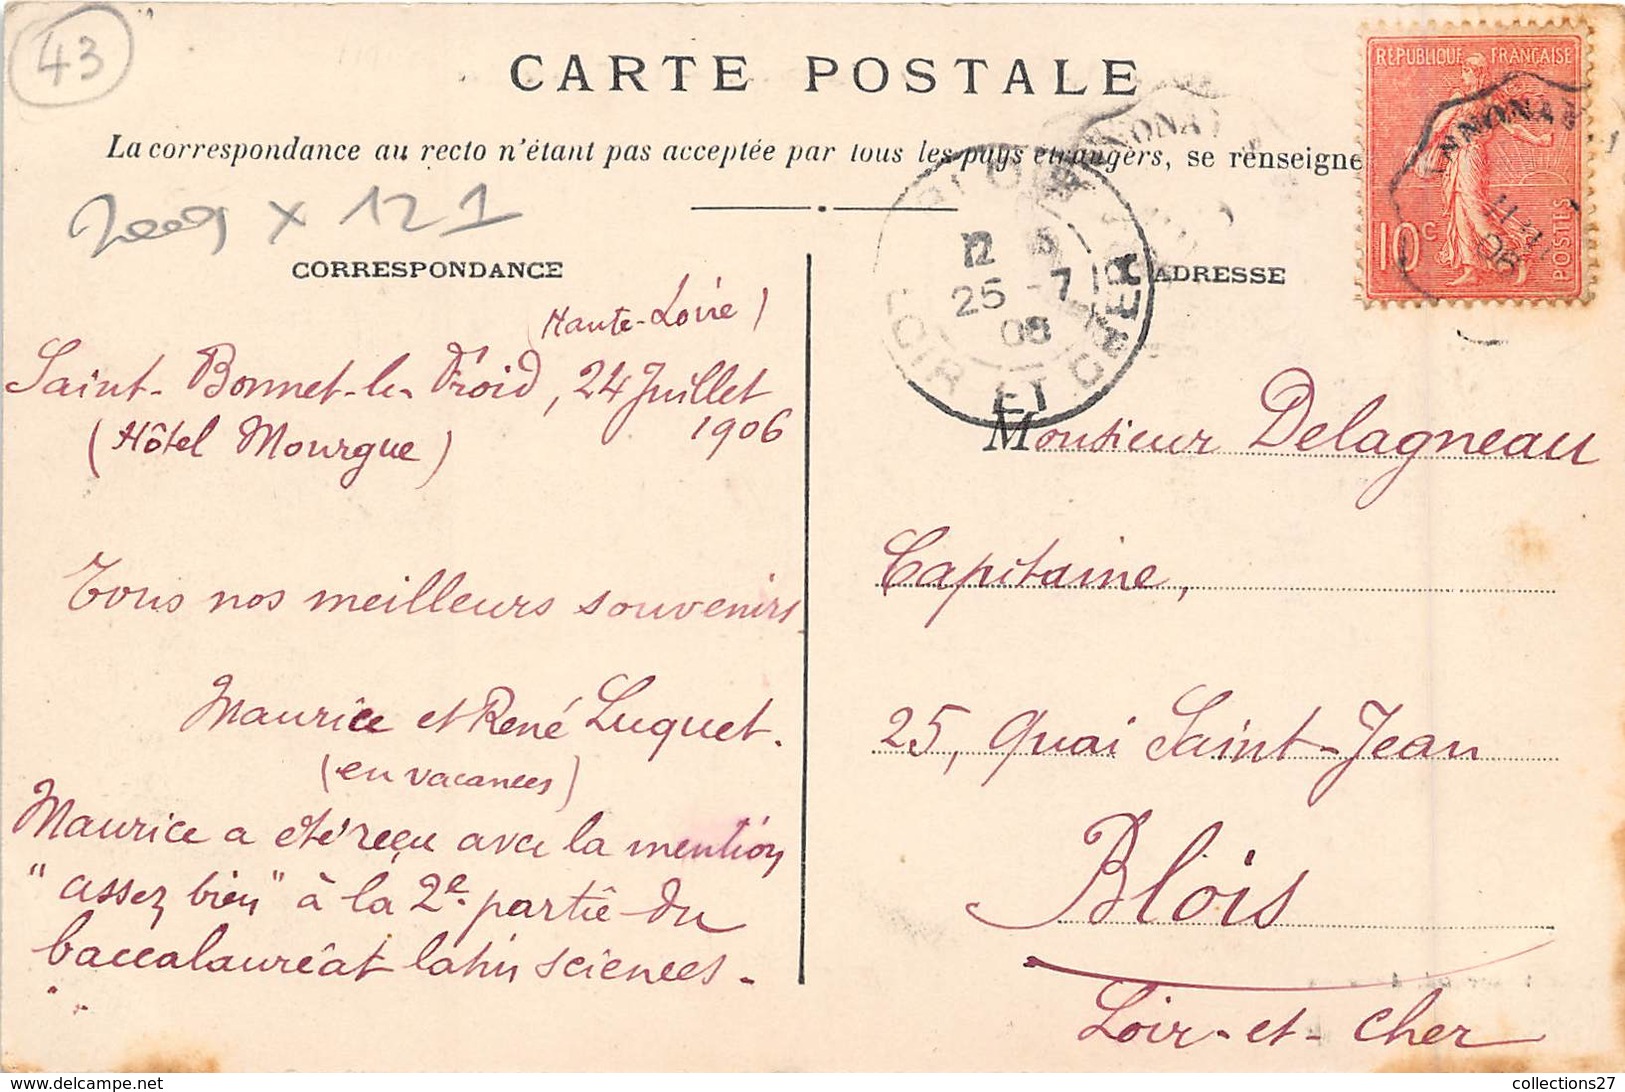 43
CARTE POSTALE
La correspondance au recto n'étant pas acceptée par tous les pays étrangers, se renseigne
RÉPUBLIQUE FRANÇAISE
10c
POSTES
ANNONAY
ANNONAY
12
25 -7
06
LOIR ET CHER
x 121
CORRESPONDANCE
(Haute-Loire)
Saint-Bonnet-le-Froid, 24 Juillet
1906
(Hôtel Mourgue)
Tous nos meilleurs souvenirs
Maurice et René Luquet.
(en vacances)
Maurice a été reçu avec la mention
"assez bien" à la 2e partie du
baccalauréat latin sciences.
ADRESSE
Monsieur Delagneau
Capitaine,
25, Quai Saint-Jean
Blois
Loir-et-Cher
© collections27